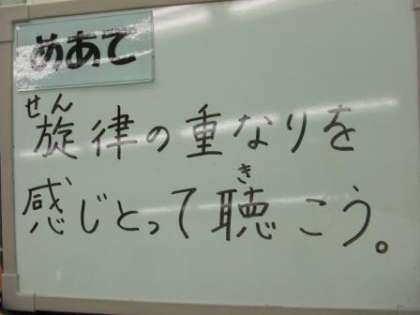 めあて
せん
旋律の重なりを
き
感じとって聴こう。